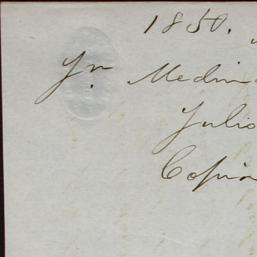 1850.
Yn Medin
Julio
Copia